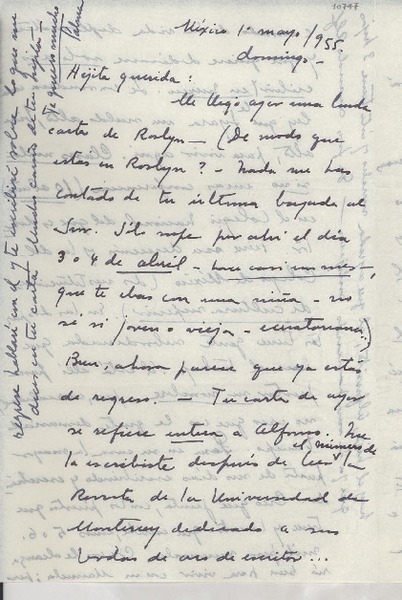 10747
México 1º mayo/955
domingo.-
Hijita querida:
Me llegó ayer una linda
carta de Roslyn — (De modo que
estás en Roslyn? - Nada me has
contado de tu última bajada al
Sur. Sólo supe por abril el día
3 o 4 de abril - hace casi un mes -,
que te ibas con una niña - no
sé si joven o vieja - ecuatoriana.)
Bien, ahora parece que ya estás
de regreso. — Tu carta de ayer
se refiere entera a Alfonso. Me
la escribiste después de leer el número de la
Revista de la Universidad de
Monterrey dedicado a sus
bodas de oro de escritor...
regrese hablaré con él y te escribiré sobre lo que me
dices en tu carta. Muchos cariños de tu hijita
Te quiere mucho
Palma